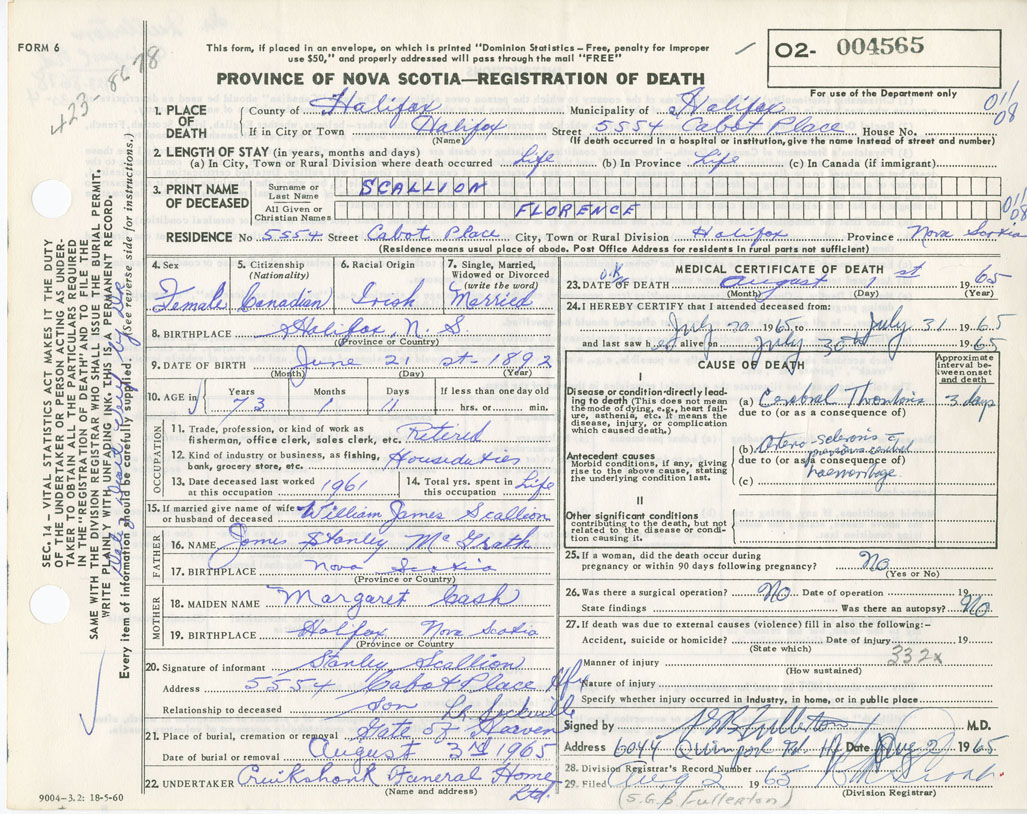 FORM 6
423-8678
This form, if placed in an envelope, on which is printed "Dominion Statistics – Free, penalty for improper
use $50," and properly addressed will pass through the mail "FREE"
PROVINCE OF NOVA SCOTIA—REGISTRATION OF DEATH
02- 004565
For use of the Department only
011/08
1. PLACE OF DEATH
County of Halifax Municipality of Halifax
If in City or Town Halifax Street 5554 Cabot Place House No.
(Name) (If death occurred in a hospital or institution, give the name instead of street and number)
2. LENGTH OF STAY (in years, months and days)
(a) In City, Town or Rural Division where death occurred Life (b) In Province Life (c) In Canada (if immigrant)
3. PRINT NAME OF DECEASED
Surname or Last Name SCALLION
All Given or Christian Names FLORENCE
011/08
RESIDENCE No. 5554 Street Cabot Place City, Town or Rural Division Halifax Province Nova Scotia
(Residence means usual place of abode. Post Office Address for residents in rural parts not sufficient)
4. Sex Female
5. Citizenship (Nationality) Canadian
6. Racial Origin Irish
7. Single, Married, Widowed or Divorced (write the word) Married
8. BIRTHPLACE Halifax, N. S.
(Province or Country)
9. DATE OF BIRTH June 21 st - 1892
(Month) (Day) (Year)
10. AGE in Years 73 Months 1 Days 11 If less than one day old hrs. or min.
OCCUPATION
11. Trade, profession, or kind of work as fisherman, office clerk, sales clerk, etc. Retired
12. Kind of industry or business, as fishing, bank, grocery store, etc. Houseduties
13. Date deceased last worked at this occupation 1961
14. Total yrs. spent in this occupation Life
15. If married give name of wife or husband of deceased William James Scallion
FATHER
16. NAME James Stanley McGrath
17. BIRTHPLACE Nova Scotia
(Province or Country)
MOTHER
18. MAIDEN NAME Margaret Cash
19. BIRTHPLACE Halifax Nova Scotia
(Province or Country)
20. Signature of informant Stanley Scallion
Address 5554 Cabot Place Hfx
Relationship to deceased Son
21. Place of burial, cremation or removal Gate of Heaven Lr. Sackville
Date of burial or removal August 3rd 1965
22. UNDERTAKER Cruikshank Funeral Home Ltd.
(Name and address)
9004-3.2: 18-5-60
MEDICAL CERTIFICATE OF DEATH
O.K.
23. DATE OF DEATH August 1 st 1965
(Month) (Day) (Year)
24. I HEREBY CERTIFY that I attended deceased from:
July 20 1965 to July 31 1965
and last saw her alive on July 30th 1965
CAUSE OF DEATH
Approximate interval between onset and death
I
Disease or condition directly leading to death (This does not mean the mode of dying, e.g., heart failure, asthenia, etc. It means the disease, injury, or complication which caused death.)
(a) Cerebral Thrombosis 3 days
due to (or as a consequence of)
Antecedent causes
Morbid conditions, if any, giving rise to the above cause, stating the underlying condition last.
(b) Arterio-sclerosis c previous cerebral
due to (or as a consequence of)
haemorrhage
(c)
II
Other significant conditions
contributing to the death, but not related to the disease or condition causing it.
25. If a woman, did the death occur during pregnancy or within 90 days following pregnancy? No
(Yes or No)
26. Was there a surgical operation? No Date of operation 19
State findings Was there an autopsy? No
27. If death was due to external causes (violence) fill in also the following:–
Accident, suicide or homicide? Date of injury 19
(State which)
332x
Manner of injury
(How sustained)
Nature of injury
Specify whether injury occurred in industry, in home, or in public place
Signed by S G B Fullerton M.D.
Address 6044 Quinpool Rd Hfx Date Aug 2 1965
28. Division Registrar's Record Number
29. Filed Aug 2 1965
(Division Registrar)
(S.G.B Fullerton)
SEC. 14 – VITAL STATISTICS ACT MAKES IT THE DUTY
OF THE UNDERTAKER OR PERSON ACTING AS UNDERTAKER TO OBTAIN ALL THE PARTICULARS REQUIRED
IN THE "REGISTRATION OF DEATH" AND TO FILE THE
SAME WITH THE DIVISION REGISTRAR WHO SHALL ISSUE THE BURIAL PERMIT.
WRITE PLAINLY WITH UNFADING INK. THIS IS A PERMANENT RECORD.
Every item of information should be carefully supplied. (See reverse side for instructions.)